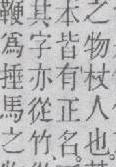 之物杖人也
本皆有正名
其字亦從竹
鞭為捶馬之